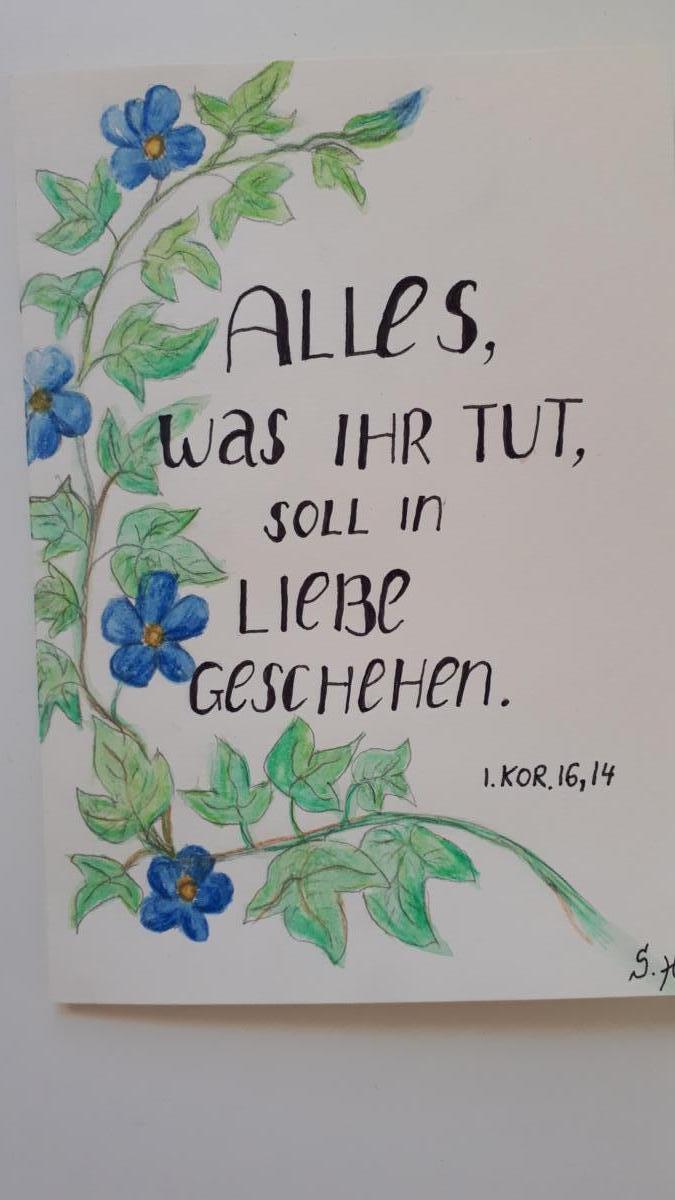 ALLES,
was IHR TUT,
SOLL in
LIEBE
GESCHEHEN.
1.KOR.16,14
S.H